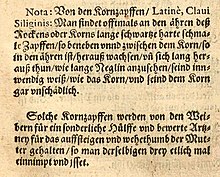 Nota: Von den Kornzapffen/ Latinè, Clavi
Siliginis: Man findet offtmals an den ähren deß
Rockens oder Korns lange schwartze harte schma-
le Zapffen/ so beneben vnnd zwischen dem Korn/ so
in den ähren ist/ herauß wachsen/ vñ sich lang her-
auß thun/ wie lange Neglin anzusehen/ seind inn-
wendig weiß/ wie das Korn/ vnd seind dem Korn
gar vnschädlich.
Solche Kornzapffen werden von den Wei-
bern für ein sonderliche Hülffe vnd bewerte Artz-
ney für das auffsteigen vnd wehethumb der Mut-
ter gehalten/ so man derselbigen drey etlich mal
einnimpt vnd isset.